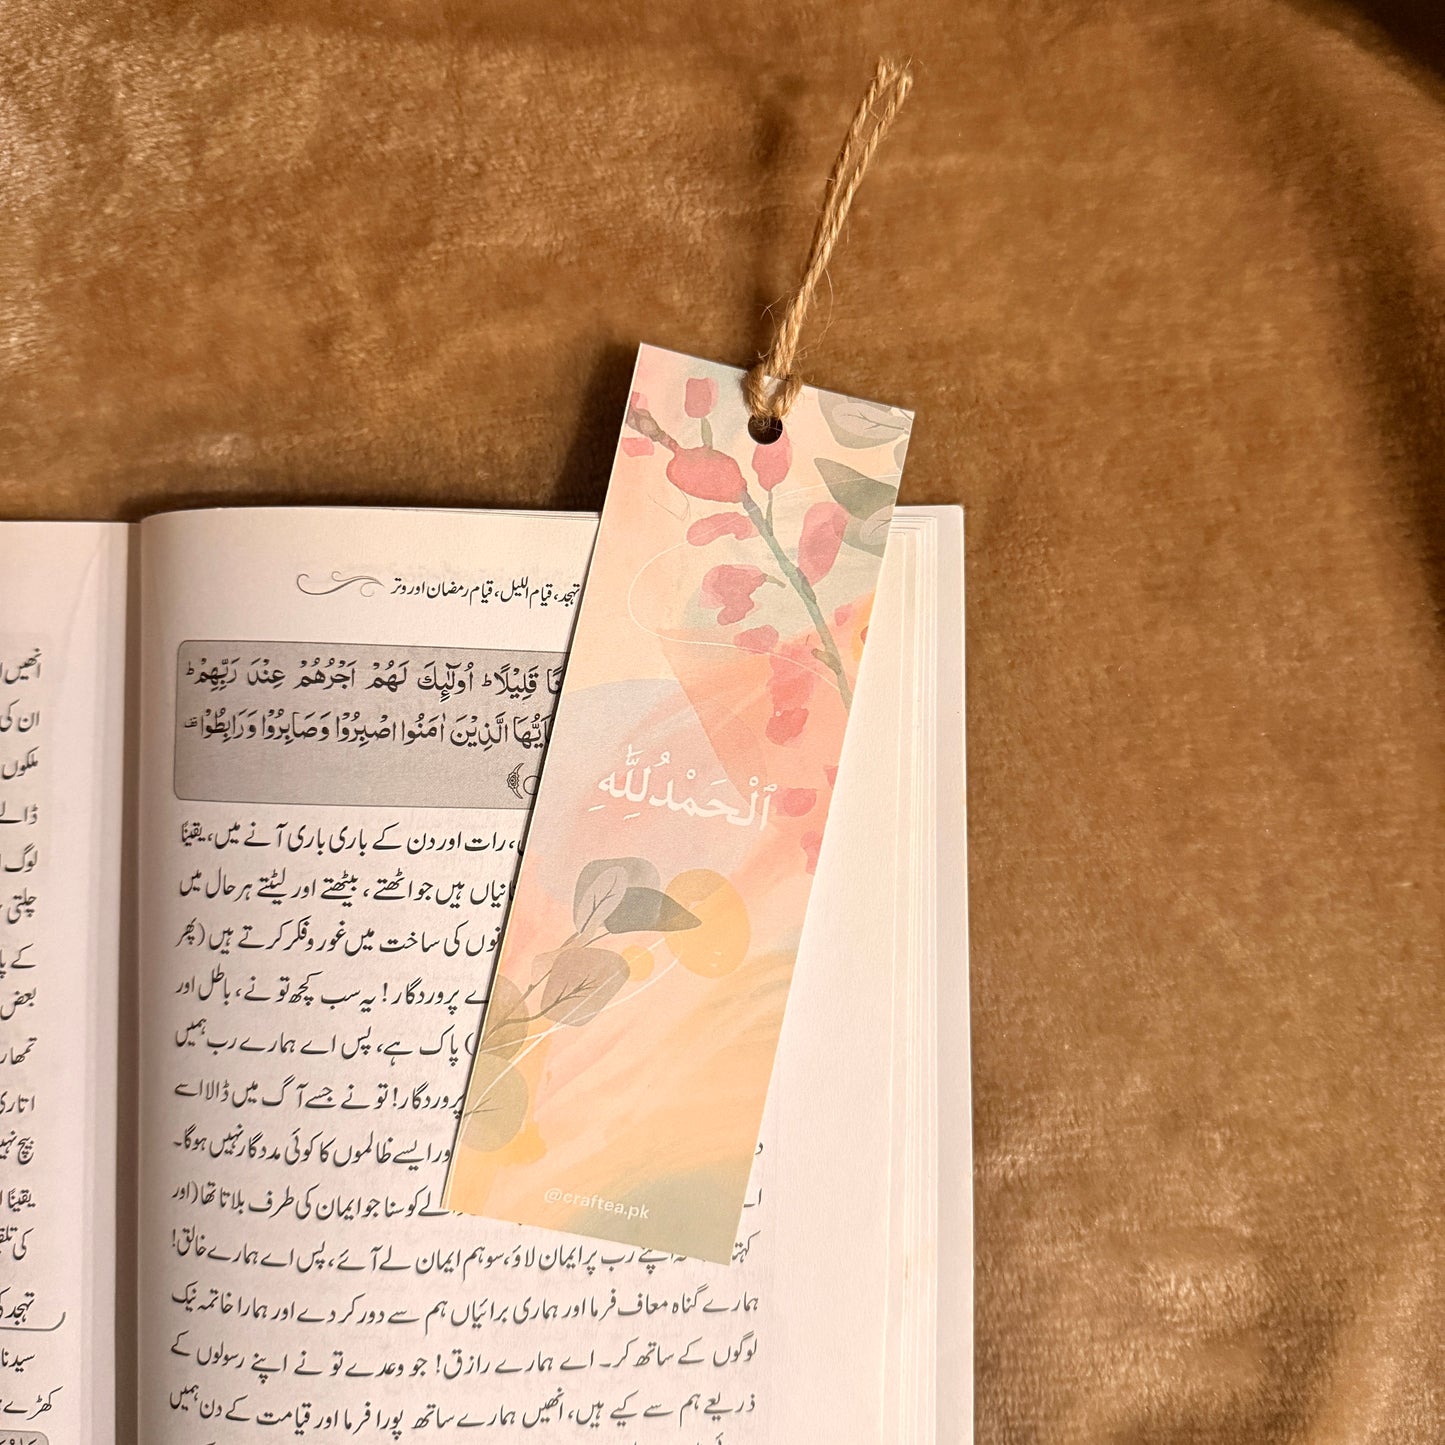 تہجد، قیام اللیل، قیام رمضان اور وتر
قَلِيْلًا ؕ اُولٰٓئِكَ لَهُمْ اَجْرُهُمْ عِنْدَ رَبِّهِمْ ؕ
الَّذِيْنَ اٰمَنُوا اصْبِرُوْا وَصَابِرُوْا وَرَابِطُوْا
، رات اور دن کے باری باری آنے میں، یقیناً
ہیں جو اٹھتے، بیٹھتے اور لیٹتے ہر حال میں
کی ساخت میں غور و فکر کرتے ہیں (پھر
پروردگار! یہ سب کچھ تو نے، باطل اور
) پاک ہے، پس اے ہمارے رب ہمیں
پروردگار! تو نے جسے آگ میں ڈالا اسے
اور ایسے ظالموں کا کوئی مددگار نہیں ہوگا۔
کو سنا جو ایمان کی طرف بلاتا تھا (اور
اپنے رب پر ایمان لاؤ، سو ہم ایمان لے آئے، پس اے ہمارے خالق!
ہمارے گناہ معاف فرما اور ہماری برائیاں ہم سے دور کر دے اور ہمارا خاتمہ نیک
لوگوں کے ساتھ کر۔ اے ہمارے رازق! جو وعدے تو نے اپنے رسولوں کے
ذریعے ہم سے کیے ہیں، انھیں ہمارے ساتھ پورا فرما اور قیامت کے دن ہمیں
ٱلْحَمْدُلِلَّٰهِ
@craftea.pk
انھیں
ان کی
ملکوں
لوگ
چلتی
بعض
اتاری
یقیناً
تہجد
سیدنا
کھڑے